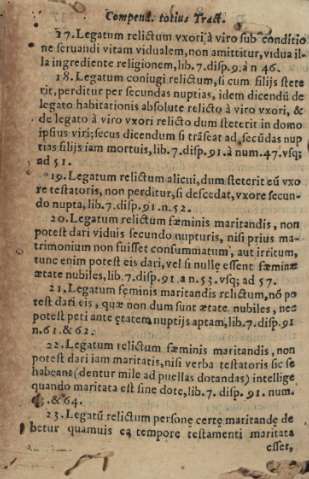 Compend. totius Tract.
17. Legatum relictum vxori, à viro sub conditio
ne seruandi vitam vidualem, non amittitur, vidua il-
la ingrediente religionem, lib. 7. disp. 9. à n 46.
18. Legatum coniugi relictum, si cum filijs stete
rit, perditur per secundas nuptias, idem dicendū de
legato habitationis absolute relicto à viro vxori, &
de legato à viro vxori relicto dum steterit in domo
ipsius viri; secus dicendum si trāseat ad secūdas nup
tias filijs iam mortuis, lib. 7. disp. 91. à num. 47. vsq;
ad 51.
19. Legatum relictum alicui, dum steterit cū vxo
re testatoris, non perditur, si descedat, vxore secun-
do nupta, lib. 7. disp. 91. n. 52.
20. Legatum relictum fæminis maritandis, non
potest dari viduis secundo nupturis, nisi prius ma-
trimonium non fuisset consummatum, aut irritum,
tunc enim potest eis dari, vel si nullę essent fæminæ
ætate nubiles, lib. 7. disp. 91. à n. 53. vsq; ad 57.
21. Legatum fęminis maritandis relictum, nō po
test dari eis, quæ non dum sunt ætate nubiles, nec
potest peti ante ętatem nuptijs aptam, lib. 7. disp. 91
n. 61. & 62.
22. Legatum relictum fæminis maritandis, non
potest dari iam maritatis, nisi verba testatoris sic se
habeant (dentur mile ad puellas dotandas) intellige
quando maritata est sine dote, lib. 7. disp. 91. num.
63. & 64.
23. Legatū relictum personę certę maritandę de
betur quamuis ea tempore testamenti maritata
esset,